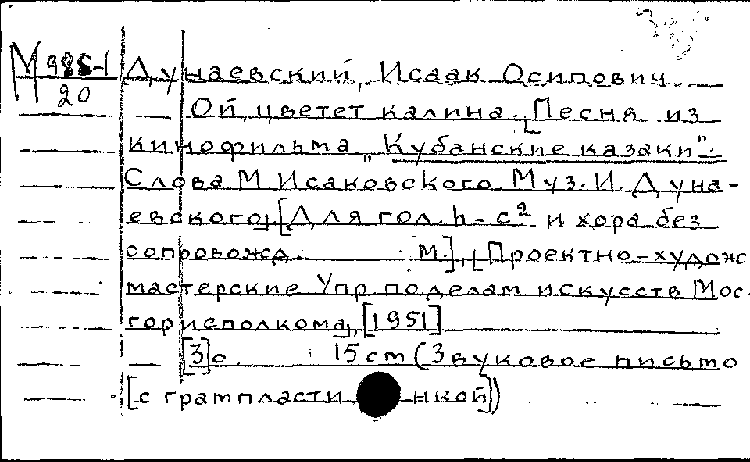 М 985-1 Дунаевский, Исаак Осипович
20
Ой, цветет калина. [Песня из
кинофильма „Кубанские казаки".
Слова М. Исаковского. Муз. И. Дуна-
евского]. [Для гол. h-c² и хора без
сопровожд. М.], [Проектно-худож
мастерские Упр. по делам искусств Мос-
горисполкома], [1951]
[3] с. 15 cm (Звуковое письмо
[с грампласти нкой])